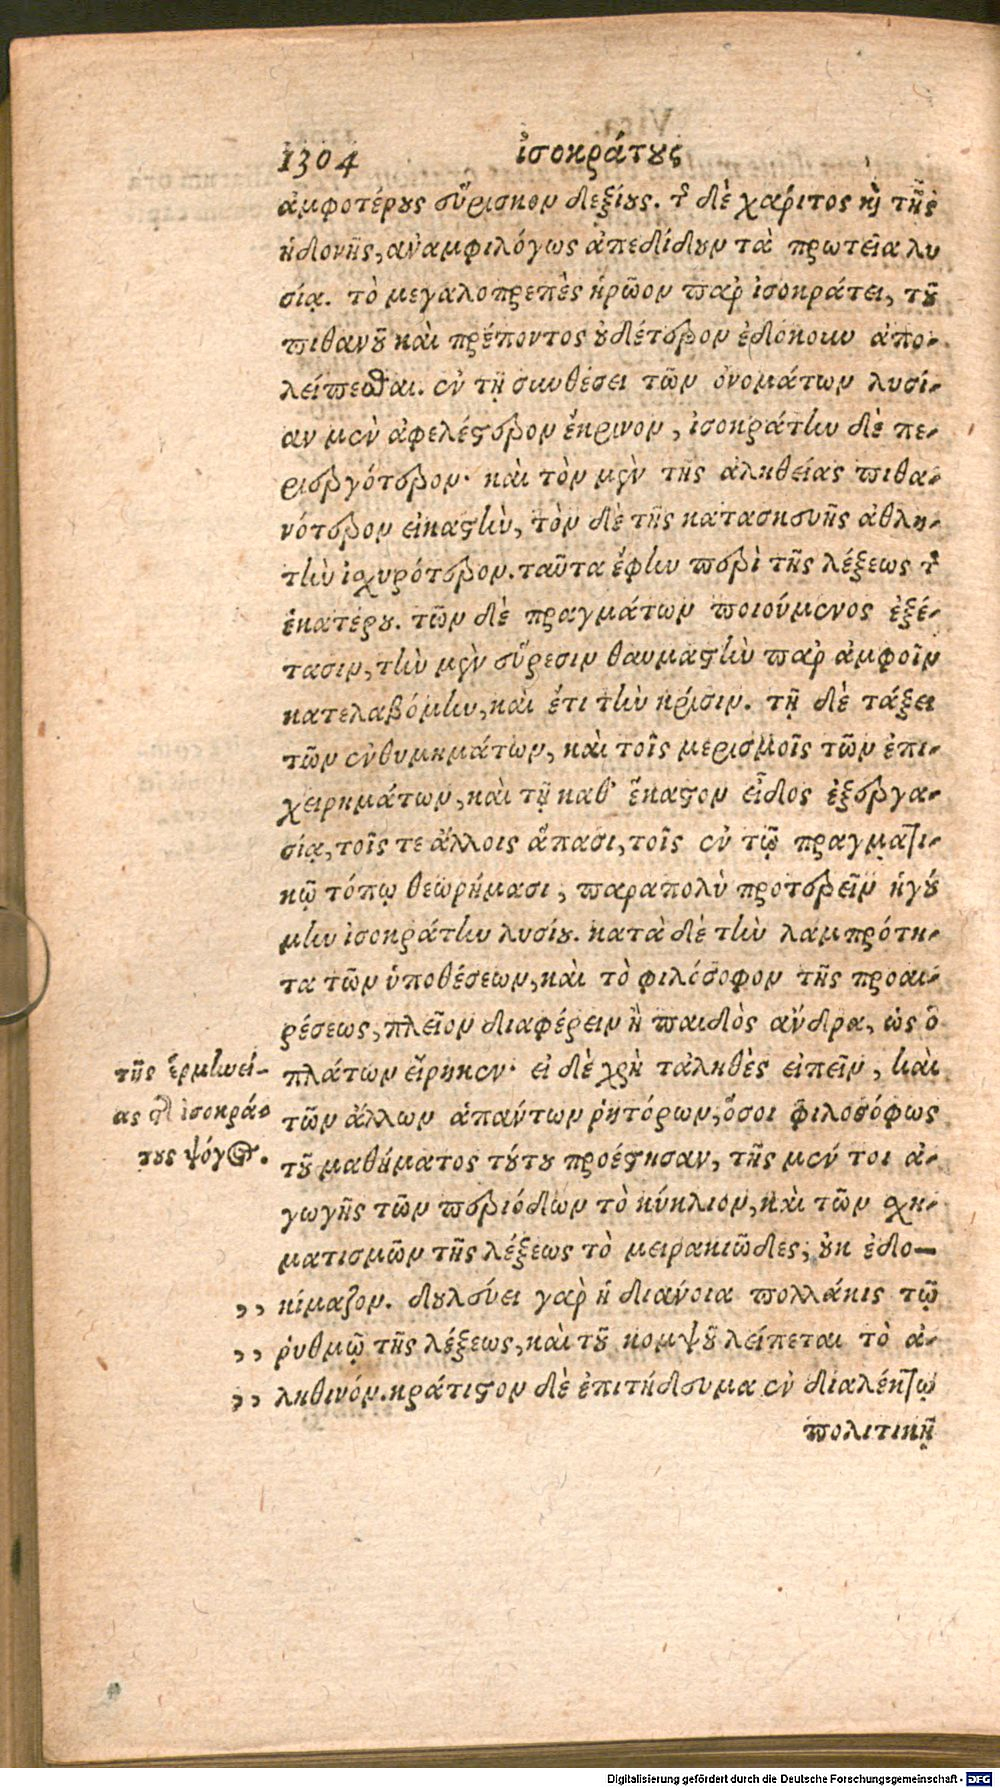 1304 ἰσοκράτους
ἀμφοτέρους εὕρισκον δεξιούς. τῆς δὲ χάριτος καὶ τῆς
ἡδονῆς, ἀναμφιλόγως ἀπεδίδουν τὰ πρωτεῖα λυ
σίᾳ. τὸ μεγαλοπρεπὲς ἑώρων παρ' ἰσοκράτει, τοῦ
πιθανοῦ καὶ πρέποντος οὐδέτερον ἐδόκουν ἀπο-
λείπεσθαι. ἐν τῇ συνθέσει τῶν ὀνομάτων λυσί-
αν μὲν ἀφελέστερον ἔκρινον, ἰσοκράτην δὲ πε-
ριεργότερον· καὶ τὸν μὲν τῆς ἀληθείας πιθα-
νότερον εἰκαστὴν, τὸν δὲ τῆς κατασκευῆς ἀθλη-
τὴν ἰσχυρότερον. ταῦτα ἔφην περὶ τῆς λέξεως τῆς
ἑκατέρου. τῶν δὲ πραγμάτων ποιούμενος ἐξέ-
τασιν, τὴν μὲν εὕρεσιν θαυμαστὴν παρ' ἀμφοῖν
κατελαβόμην, καὶ ἔτι τὴν κρίσιν. τῇ δὲ τάξει
τῶν ἐνθυμημάτων, καὶ τοῖς μερισμοῖς τῶν ἐπι-
χειρημάτων, καὶ τῇ καθ' ἕκαστον εἶδος ἐξεργα-
σίᾳ, τοῖς τε ἄλλοις ἅπασι, τοῖς ἐν τῷ πραγματι-
κῷ τόπῳ θεωρήμασι, παραπολὺ προτερεῖν ἡγού
μην ἰσοκράτην λυσίου. κατὰ δὲ τὴν λαμπρότη-
τα τῶν ὑποθέσεων, καὶ τὸ φιλόσοφον τῆς προαι-
ρέσεως, πλεῖον διαφέρειν ἢ παιδὸς ἄνδρα, ὡς ὁ
πλάτων εἴρηκεν· εἰ δὲ χρὴ τἀληθὲς εἰπεῖν, καὶ
τῶν ἄλλων ἁπάντων ῥητόρων, ὅσοι φιλοσόφως
τοῦ μαθήματος τούτου προέστησαν, τῆς μέν τοι ἀ-
γωγῆς τῶν περιόδων τὸ κύκλιον, καὶ τῶν σχη-
ματισμῶν τῆς λέξεως τὸ μειρακιῶδες, οὐκ ἐδο-
,, κίμαζον. δουλεύει γὰρ ἡ διάνοια πολλάκις τῷ
,, ῥυθμῷ τῆς λέξεως, καὶ τοῦ κομψοῦ λείπεται τὸ ἀ-
,, ληθινόν. κράτιστον δὲ ἐπιτήδευμα ἐν διαλέκτῳ
πολιτικῇ
τῆς ἑρμηνεί-
ας τῆς ἰσοκρά-
τους ψόγος.
Digitalisierung gefördert durch die Deutsche Forschungsgemeinschaft - DFG